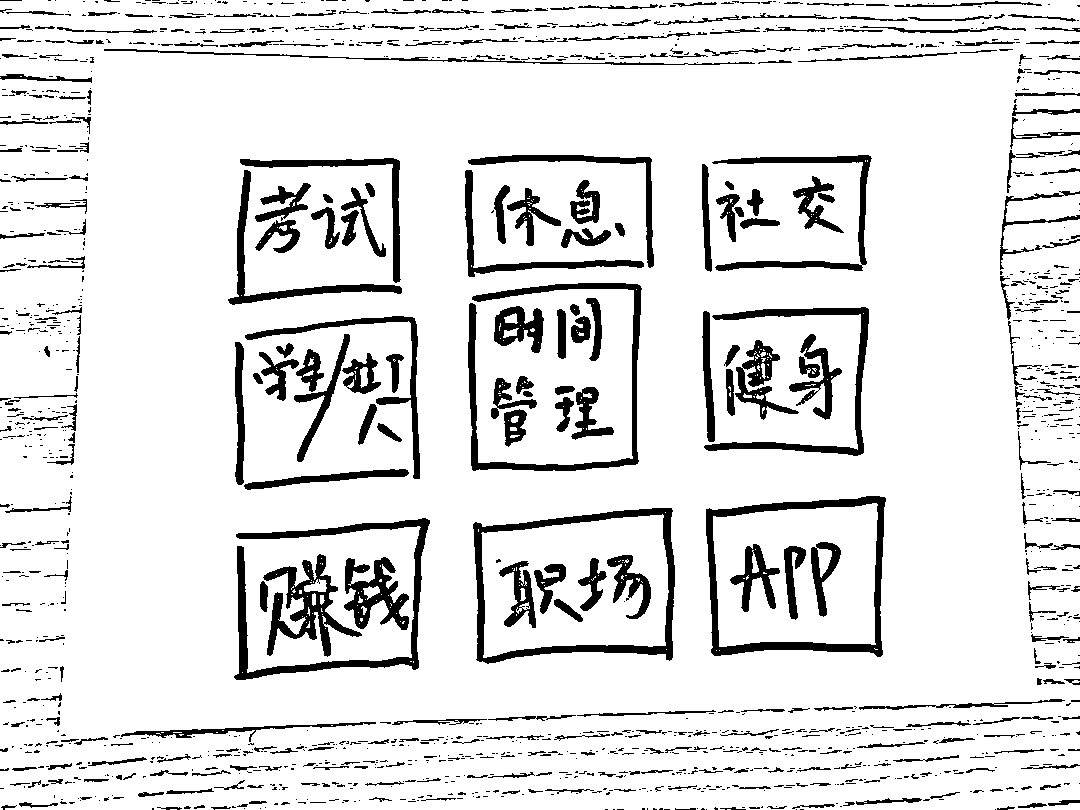 考试
休息
社交
学生/打工
人
时间
管理
健身
赚钱
职场
APP